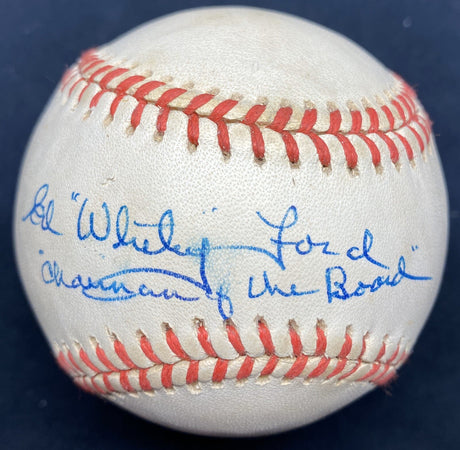 Ed "Whitey" Ford
"Chairman of the Board"